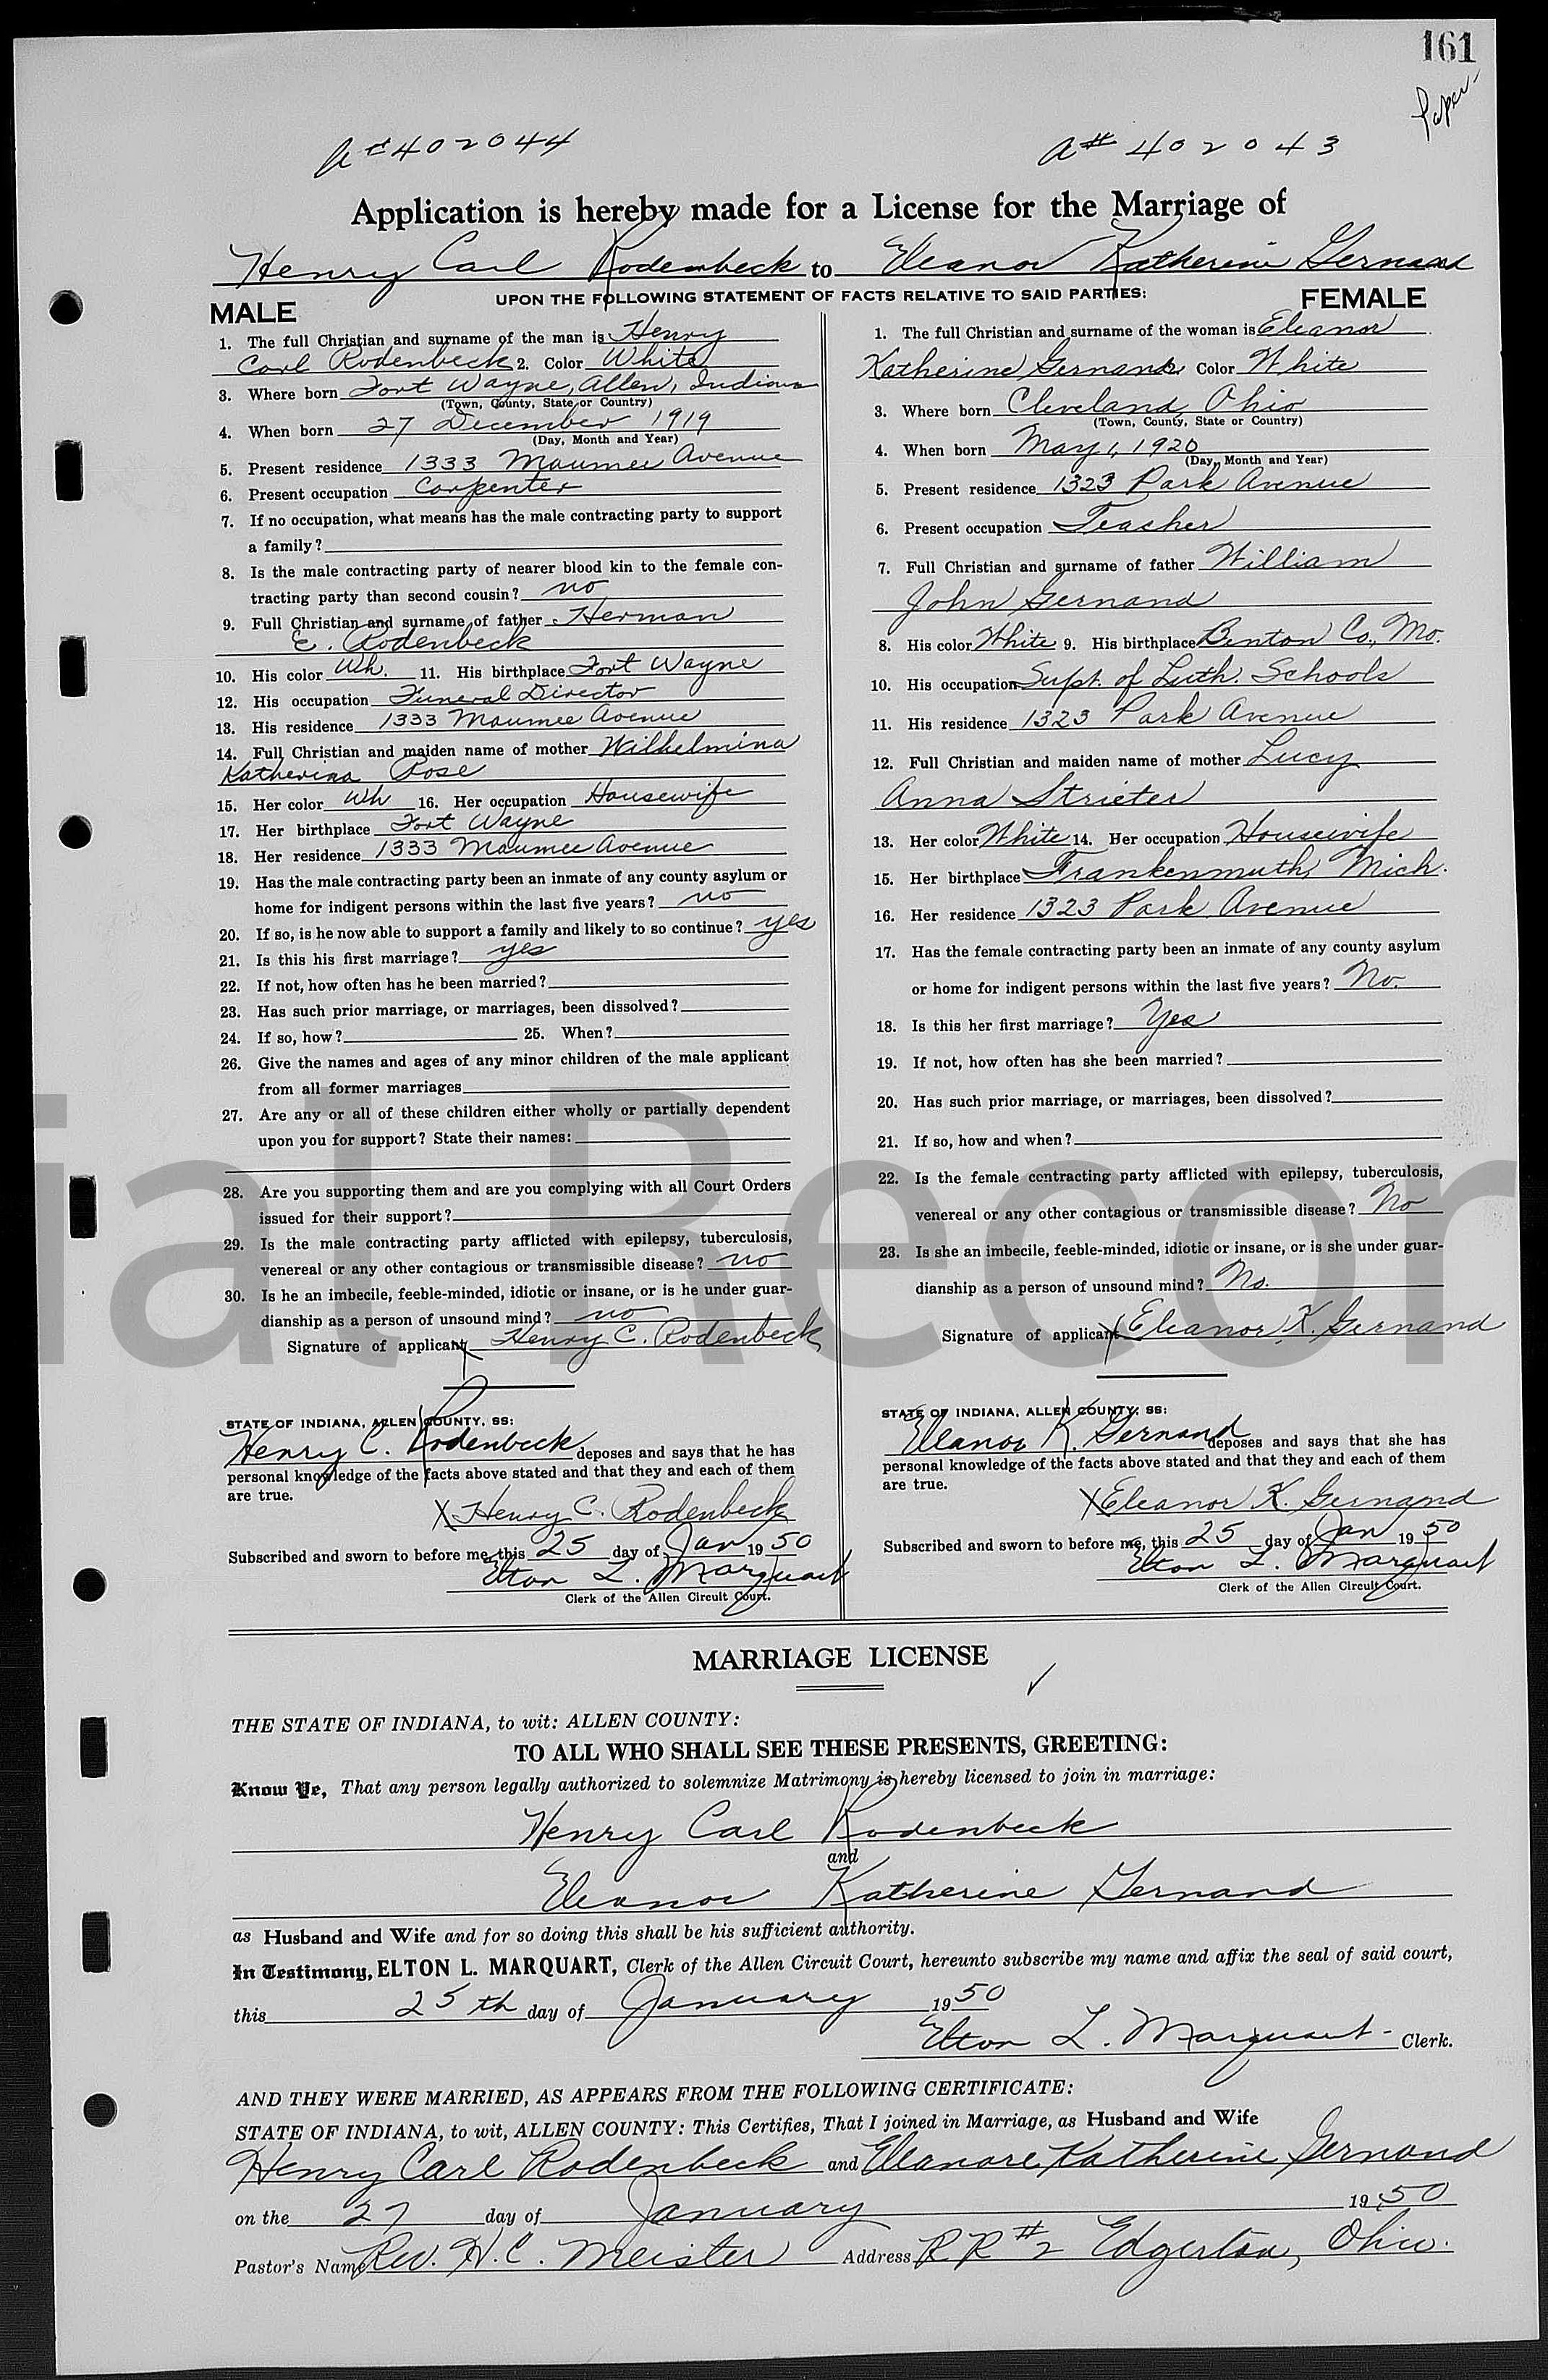 161
Paper
A# 402044
A# 402043
Application is hereby made for a License for the Marriage of
Henry Carl Rodenbeck to Eleanor Katherine Gernand
UPON THE FOLLOWING STATEMENT OF FACTS RELATIVE TO SAID PARTIES:
MALE
1. The full Christian and surname of the man is Henry
Carl Rodenbeck 2. Color White
3. Where born Fort Wayne, Allen, Indiana
(Town, County, State or Country)
4. When born 27 December 1919
(Day, Month and Year)
5. Present residence 1333 Maumee Avenue
6. Present occupation Carpenter
7. If no occupation, what means has the male contracting party to support
a family?
8. Is the male contracting party of nearer blood kin to the female con-
tracting party than second cousin? no
9. Full Christian and surname of father Herman
E. Rodenbeck
10. His color Wh. 11. His birthplace Fort Wayne
12. His occupation Funeral Director
13. His residence 1333 Maumee Avenue
14. Full Christian and maiden name of mother Wilhelmina
Katherina Rose
15. Her color Wh 16. Her occupation Housewife
17. Her birthplace Fort Wayne
18. Her residence 1333 Maumee Avenue
19. Has the male contracting party been an inmate of any county asylum or
home for indigent persons within the last five years? no
20. If so, is he now able to support a family and likely to so continue? yes
21. Is this his first marriage? yes
22. If not, how often has he been married?
23. Has such prior marriage, or marriages, been dissolved?
24. If so, how? 25. When?
26. Give the names and ages of any minor children of the male applicant
from all former marriages
27. Are any or all of these children either wholly or partially dependent
upon you for support? State their names:
28. Are you supporting them and are you complying with all Court Orders
issued for their support?
29. Is the male contracting party afflicted with epilepsy, tuberculosis,
venereal or any other contagious or transmissible disease? no
30. Is he an imbecile, feeble-minded, idiotic or insane, or is he under guar-
dianship as a person of unsound mind? no
Signature of applicant X Henry C. Rodenbeck
STATE OF INDIANA, ALLEN COUNTY, SS:
Henry C. Rodenbeck deposes and says that he has
personal knowledge of the facts above stated and that they and each of them
are true.
X Henry C. Rodenbeck
Subscribed and sworn to before me, this 25 day of Jan 19 50
Elton L. Marquart
Clerk of the Allen Circuit Court.
FEMALE
1. The full Christian and surname of the woman is Eleanor
Katherine Gernand 2. Color White
3. Where born Cleveland, Ohio
(Town, County, State or Country)
4. When born May 1, 1920
(Day, Month and Year)
5. Present residence 1323 Park Avenue
6. Present occupation Teacher
7. Full Christian and surname of father William
John Gernand
8. His color White 9. His birthplace Benton Co., Mo.
10. His occupation Supt. of Luth. Schools
11. His residence 1323 Park Avenue
12. Full Christian and maiden name of mother Lucy
Anna Strieter
13. Her color White 14. Her occupation Housewife
15. Her birthplace Frankenmuth, Mich.
16. Her residence 1323 Park Avenue
17. Has the female contracting party been an inmate of any county asylum
or home for indigent persons within the last five years? No.
18. Is this her first marriage? Yes
19. If not, how often has she been married?
20. Has such prior marriage, or marriages, been dissolved?
21. If so, how and when?
22. Is the female contracting party afflicted with epilepsy, tuberculosis,
venereal or any other contagious or transmissible disease? No
23. Is she an imbecile, feeble-minded, idiotic or insane, or is she under guar-
dianship as a person of unsound mind? No.
Signature of applicant X Eleanor K. Gernand
STATE OF INDIANA, ALLEN COUNTY, SS:
Eleanor K. Gernand deposes and says that she has
personal knowledge of the facts above stated and that they and each of them
are true.
X Eleanor K. Gernand
Subscribed and sworn to before me, this 25 day of Jan 19 50
Elton L. Marquart
Clerk of the Allen Circuit Court.
ial Recor
MARRIAGE LICENSE
THE STATE OF INDIANA, to wit: ALLEN COUNTY:
TO ALL WHO SHALL SEE THESE PRESENTS, GREETING:
Know Ye, That any person legally authorized to solemnize Matrimony is hereby licensed to join in marriage:
Henry Carl Rodenbeck
and
Eleanor Katherine Gernand
as Husband and Wife and for so doing this shall be his sufficient authority.
In Testimony, ELTON L. MARQUART, Clerk of the Allen Circuit Court, hereunto subscribe my name and affix the seal of said court,
this 25th day of January 19 50
Elton L. Marquart Clerk.
AND THEY WERE MARRIED, AS APPEARS FROM THE FOLLOWING CERTIFICATE:
STATE OF INDIANA, to wit, ALLEN COUNTY: This Certifies, That I joined in Marriage, as Husband and Wife
Henry Carl Rodenbeck and Eleanore Katherine Gernand
on the 27 day of January 19 50
Pastor's Name Rev. H. C. Meister Address RR #2 Edgerton, Ohio.